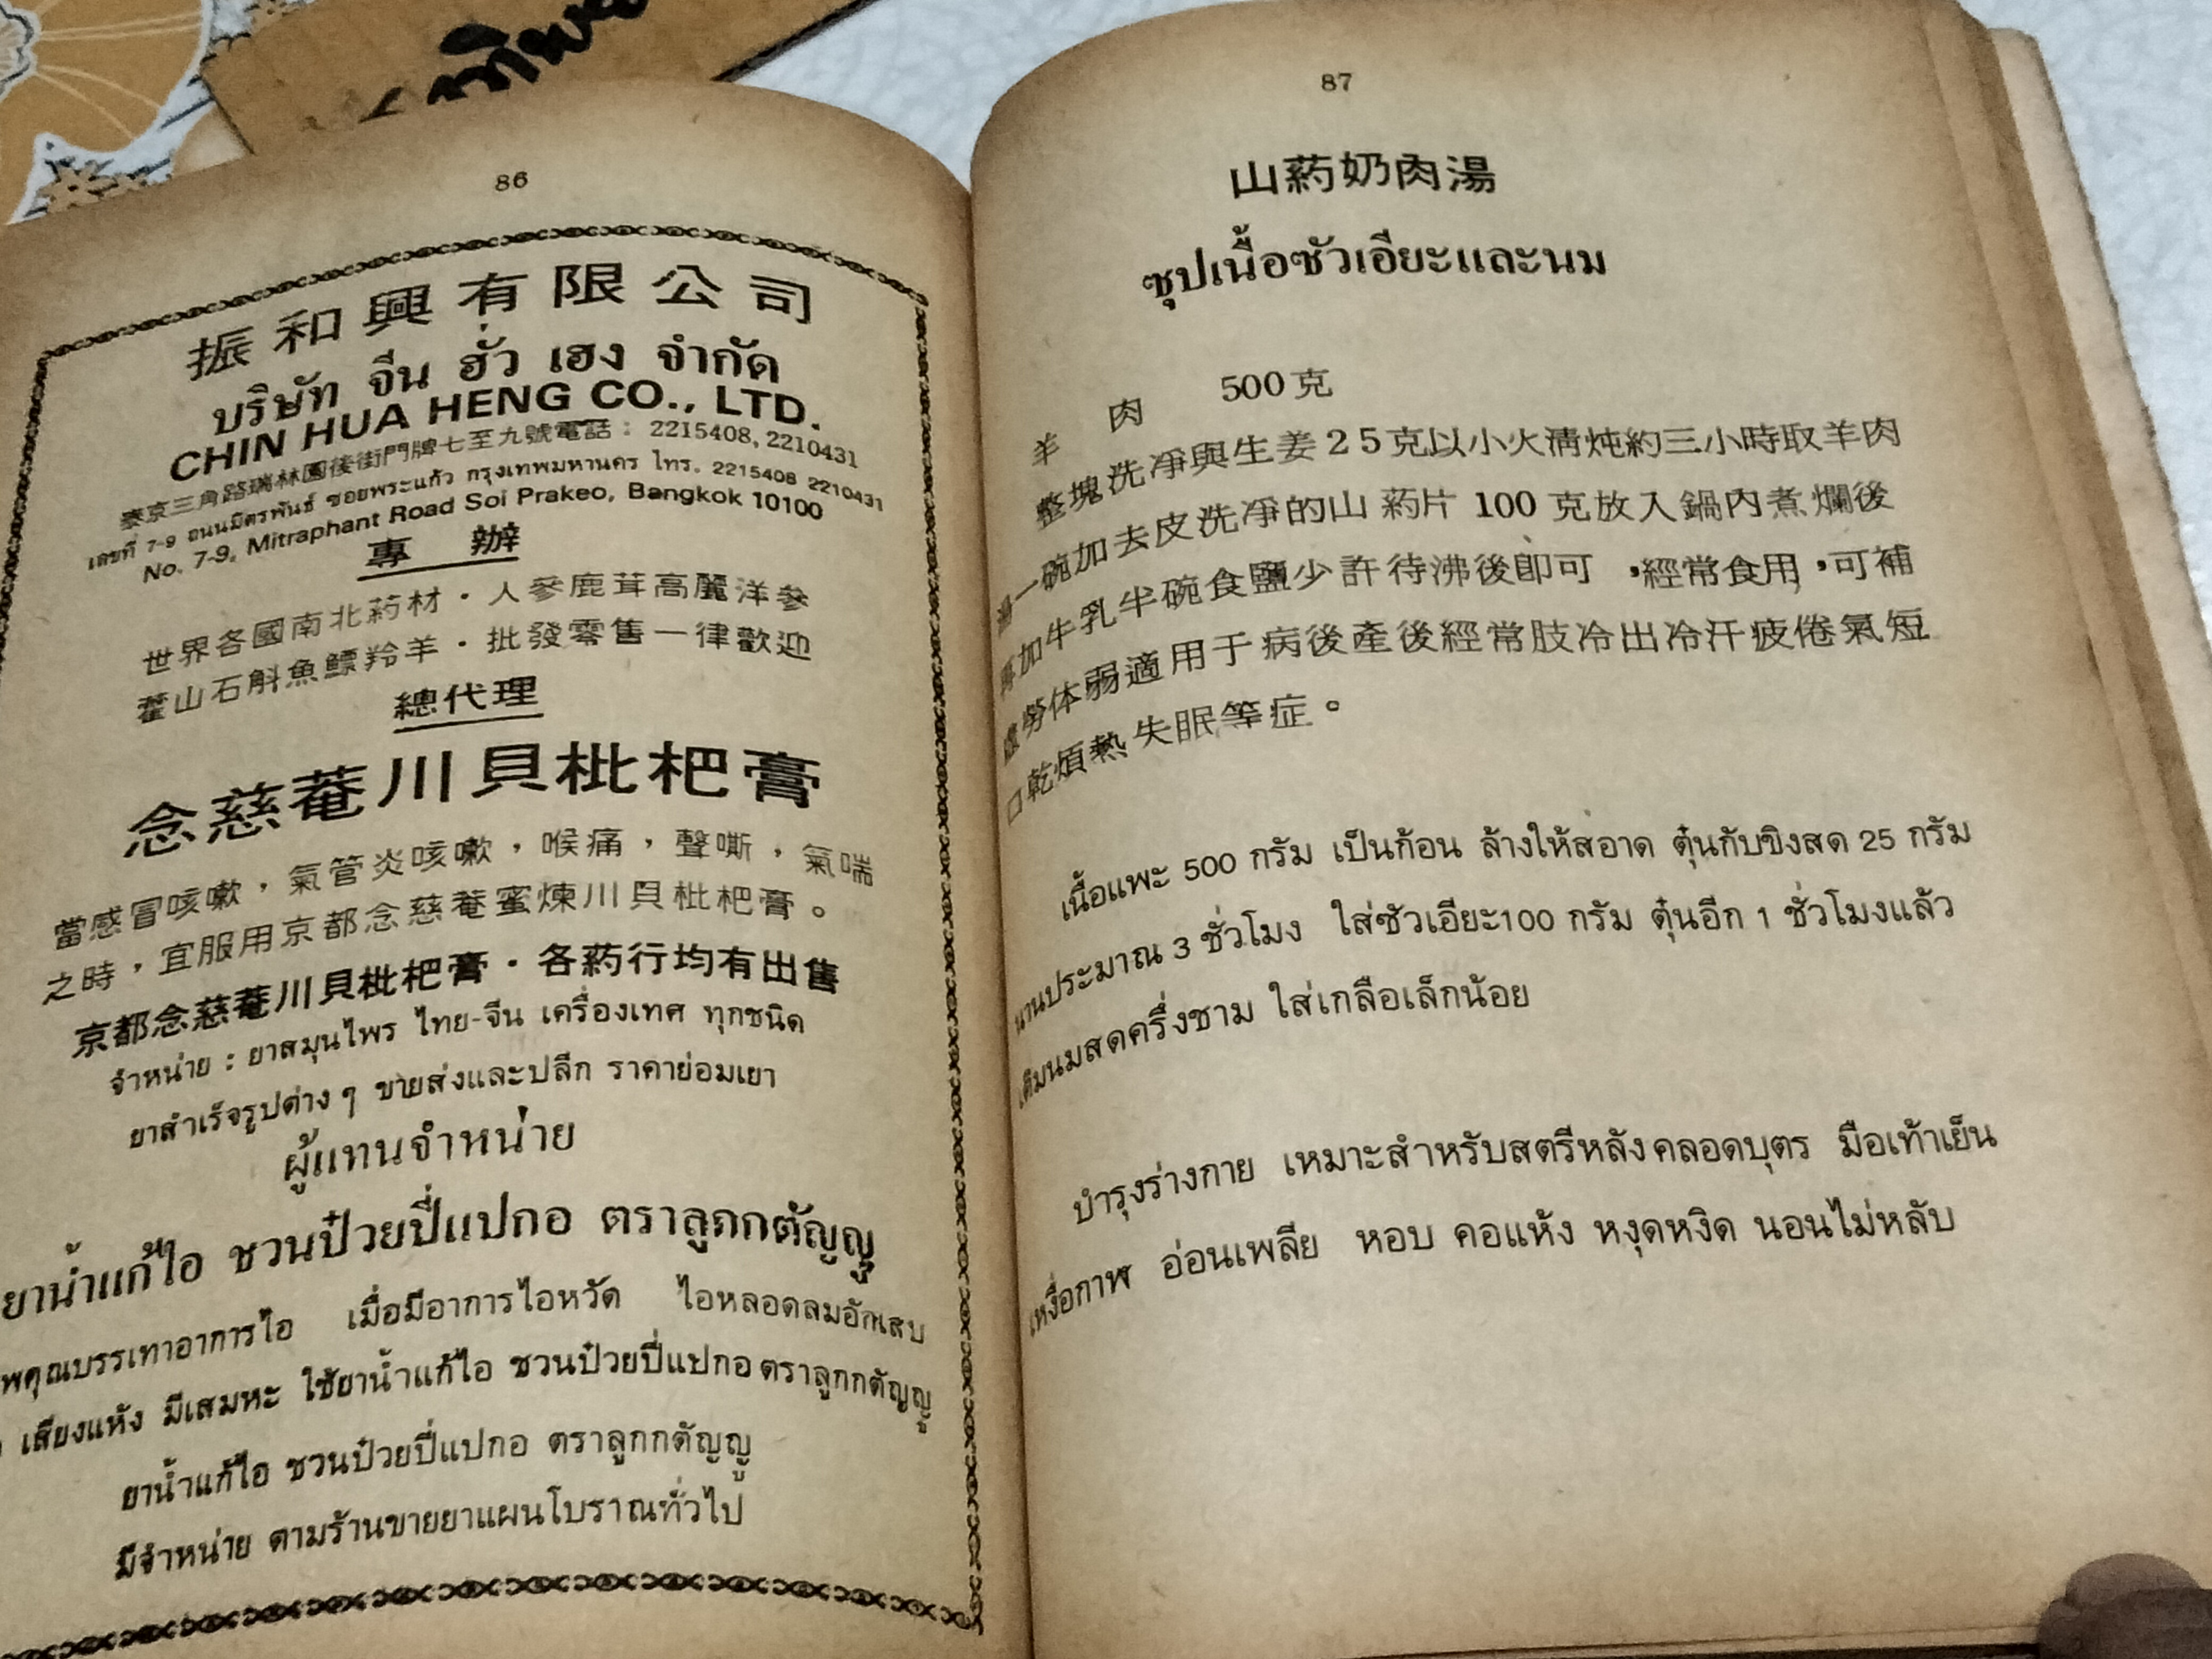 86
振和興有限公司
บริษัท จีน ฮั่ว เฮง จำกัด
CHIN HUA HENG CO., LTD.
泰京三角路瑞林園後街門牌七至九號電話： 2215408, 2210431
เลขที่ 7-9 ถนนมิตรพันธ์ ซอยพระแก้ว กรุงเทพมหานคร โทร. 2215408 2210431
No. 7-9, Mitraphant Road Soi Prakeo, Bangkok 10100
專 辦
世界各國南北药材．人參鹿茸高麗洋參
藿山石斛魚鰾羚羊．批發零售一律歡迎
總代理
念慈菴川貝枇杷膏
當感冒咳嗽，氣管炎咳嗽，喉痛，聲嘶，氣喘
之時，宜服用京都念慈菴蜜煉川貝枇杷膏。
京都念慈菴川貝枇杷膏．各药行均有出售
จำหน่าย : ยาสมุนไพร ไทย-จีน เครื่องเทศ ทุกชนิด
ยาสำเร็จรูปต่าง ๆ ขายส่งและปลีก ราคาย่อมเยา
ผู้แทนจำหน่าย
ยาน้ำแก้ไอ ชวนป๋วยปี่แปกอ ตราลูกกตัญญู
พคุณบรรเทาอาการไอ เมื่อมีอาการไอหวัด ไอหลอดลมอักเสบ
เสียงแห้ง มีเสมหะ ใช้ยาน้ำแก้ไอ ชวนป๋วยปี่แปกอ ตราลูกกตัญญู
ยาน้ำแก้ไอ ชวนป๋วยปี่แปกอ ตราลูกกตัญญู
มีจำหน่าย ตามร้านขายยาแผนโบราณทั่วไป
87
山药奶肉湯
ซุปเนื้อซัวเอียะและนม
羊 肉 500克
整塊洗凈與生姜25克以小火清炖約三小時取羊肉
湯一碗加去皮洗凈的山药片100克放入鍋内煮爛後
再加牛乳半碗食鹽少許待沸後即可，經常食用，可補
虛勞体弱適用于病後產後經常肢冷出冷汗疲倦氣短
口乾煩熱失眠等症。
เนื้อแพะ 500 กรัม เป็นก้อน ล้างให้สอาด ตุ๋นกับขิงสด 25 กรัม
นานประมาณ 3 ชั่วโมง ใส่ซัวเอียะ100 กรัม ตุ๋นอีก 1 ชั่วโมงแล้ว
เติมนมสดครึ่งชาม ใส่เกลือเล็กน้อย
บำรุงร่างกาย เหมาะสำหรับสตรีหลังคลอดบุตร มือเท้าเย็น
เหงื่อกาฬ อ่อนเพลีย หอบ คอแห้ง หงุดหงิด นอนไม่หลับ